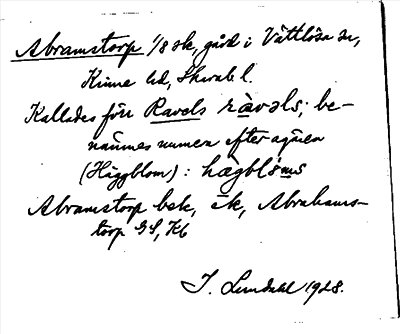 Abramstorp 1/8 sk, gård i Vättlösa sn,
Kinne hd, Skarab l.
Kalledes förr Ravels ràvəls; be-
nämnes numera efter ägaren
(Häggblom): hægblóms
Abramstorp bsk, ēk, Abrahams-
torp GS, Kb
I. Lundahl 1928.